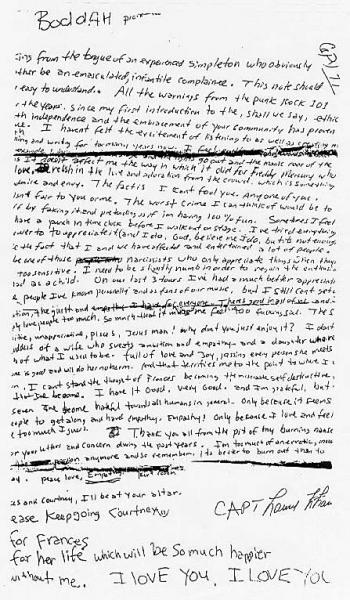 BoddAH
ing from the tongue of an experienced simpleton who obviously
ther be an emasculated, infantile complainee. This note should
easy to understand. All the warnings from the punk rock 101
the years. since my first introduction to the, shall we say, ethic
th independence and the embracement of your community has proven
ue. I havent felt the excitement of listening to as well as
ing and writing for too many years now. I feel
go out and the manic roar of the
it doesnt affect me the way in which it did for freddy Mercury who
love, relish in the love and adoration from the crowd. which is something
dmire and envy. The fact is I cant fool you. Any one of you.
isnt fair to you or me. The worst crime I can think of would be to
off by faking it and pretending as if im having 100% fun. Sometimes I feel
have a punch in time clock before I walk out on stage. I've tried everything
ower to to appreciate it (and I do, God, believe me I do, but its not enough)
the fact that I and we have affected and entertained a lot of people.
be one of those narcissists who only appreciate things when they
too sensitive. I need to be slightly numb in order to regain the enthusia
had as a child. On our last 3 tours I've had a much better appreciati
people I've known personally and as fans of our music. But I still cant get o
tion, the guilt and empathy I have for everyone. Theres good in all of us and i
ply love people too much. So much that it makes me feel too fucking sad. The s
itive, unappreciative, pisces, Jesus man! why dont you just enjoy it? I dont
oddess of a wife who sweats ambition and empathy and a daughter who re
ch of what I used to be. full of love and Joy, kissing every person she meets
ne is good and will do her no harm. And that terrifies me to the point to where I c
n. I cant stand the thought of Frances becoming the miserable self destructive,
that Ive become. I have it Good, very Good. and I'm grateful, but
seven I've become hateful towards all humans in general. Only because it seems
eople to get along and have empathy. Empathy! Only because I love and feel
too much I guess. Thank you all from the pit of my burning nauseo
or your letters and concern during the past years. I'm too much of an erratic, moo
passion anymore and so remember, its better to burn out than to
ay. peace, love, Empathy. Kurt Cobain
es and Courtney, I'll be at your altar.
ease Keep going Courtney,
for Frances
for her life which will be so much happier
without me. I LOVE YOU. I LOVE YOU